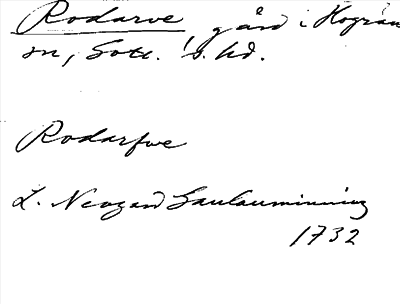 Rodarve, gård i Hogrän
sn, Gotl. s. hd.
Rodarfve
L. Neogard Gaulauminning
1732